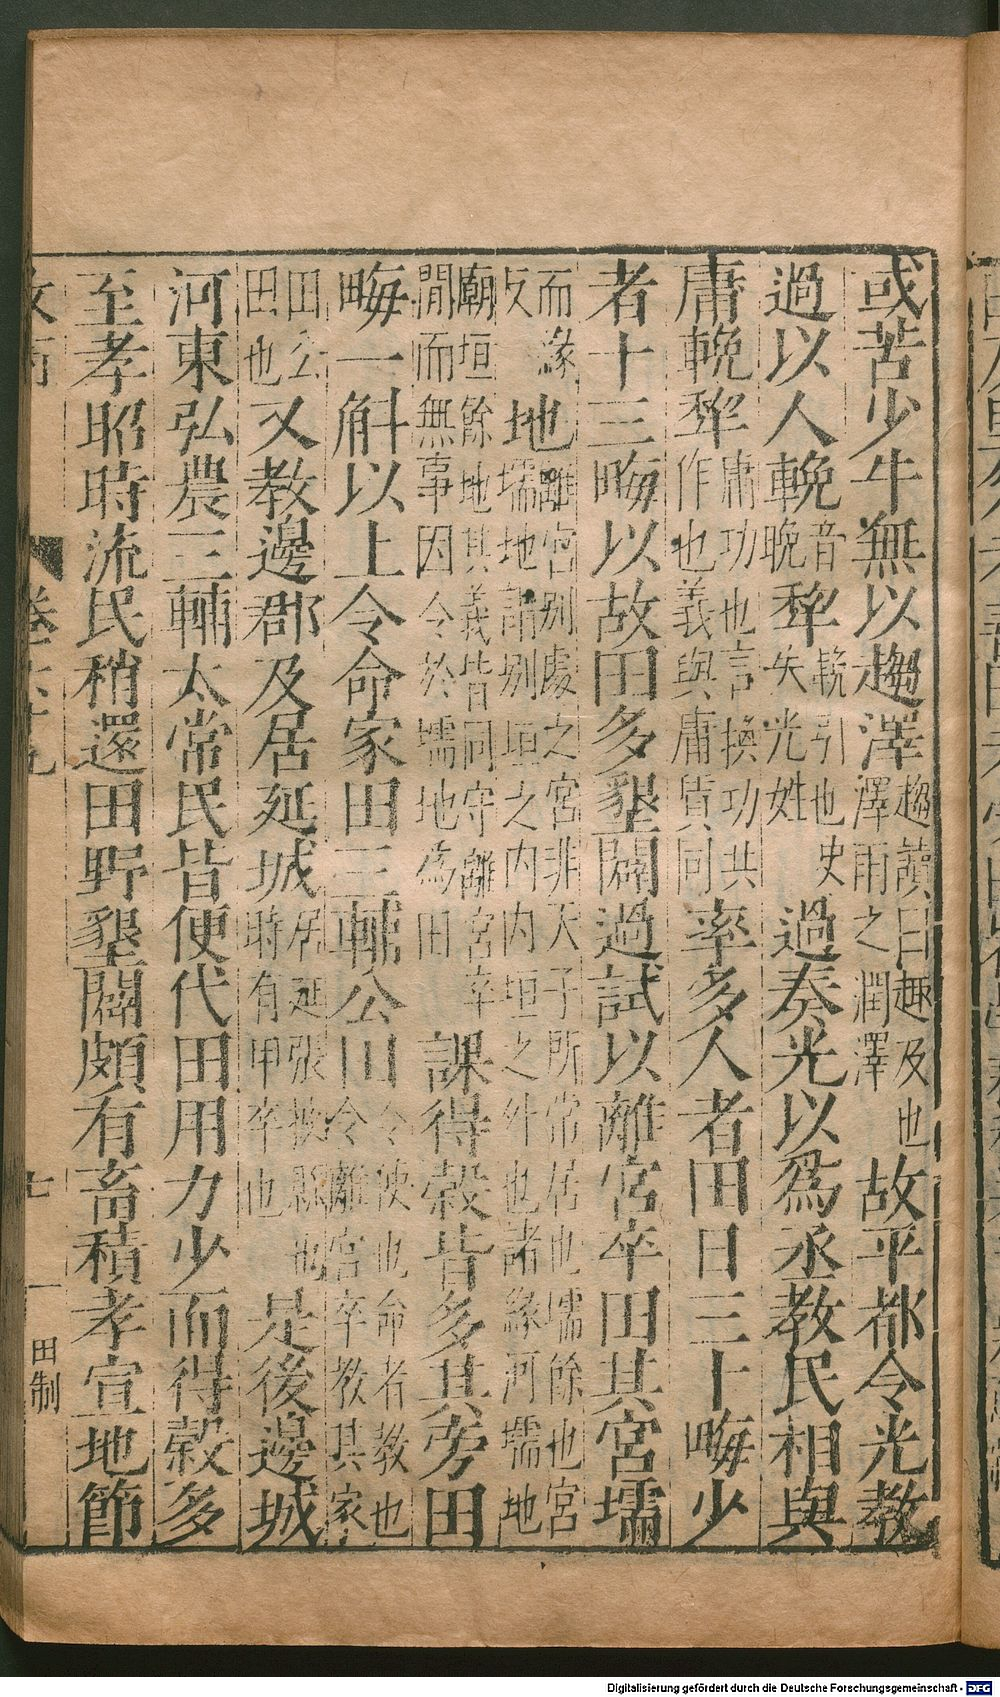 或苦少牛無以趨澤趨讀曰趣及也澤雨之潤澤故平都令光教
過以人輓音晚犂輓引也史失光姓過奏光以爲丞教民相與
庸輓犂庸功也言換功共作也義與庸賃同率多人者田日三十畮少
者十三畮以故田多墾闢過試以離宮卒田其宮壖
而緣反地離宮别處之宮非天子所常居也壖餘也宮壖地謂别垣之内内垣之外也諸緣河壖地
廟垣餘地其義皆同守離宮卒閒而無事因令於壖地為田課得穀皆多其旁田
畮一斛以上令命家田三輔公田令使也命者教也令離宮卒教其家
田公田也又教邊郡及居延城居延張掖縣也時有甲卒也是後邊城
河東弘農三輔太常民皆便代田用力少而得穀多
至孝昭時流民稍還田野墾闢頗有畜積孝宣地節
七
一
田制
Digitalisierung gefördert durch die Deutsche Forschungsgemeinschaft - DFG